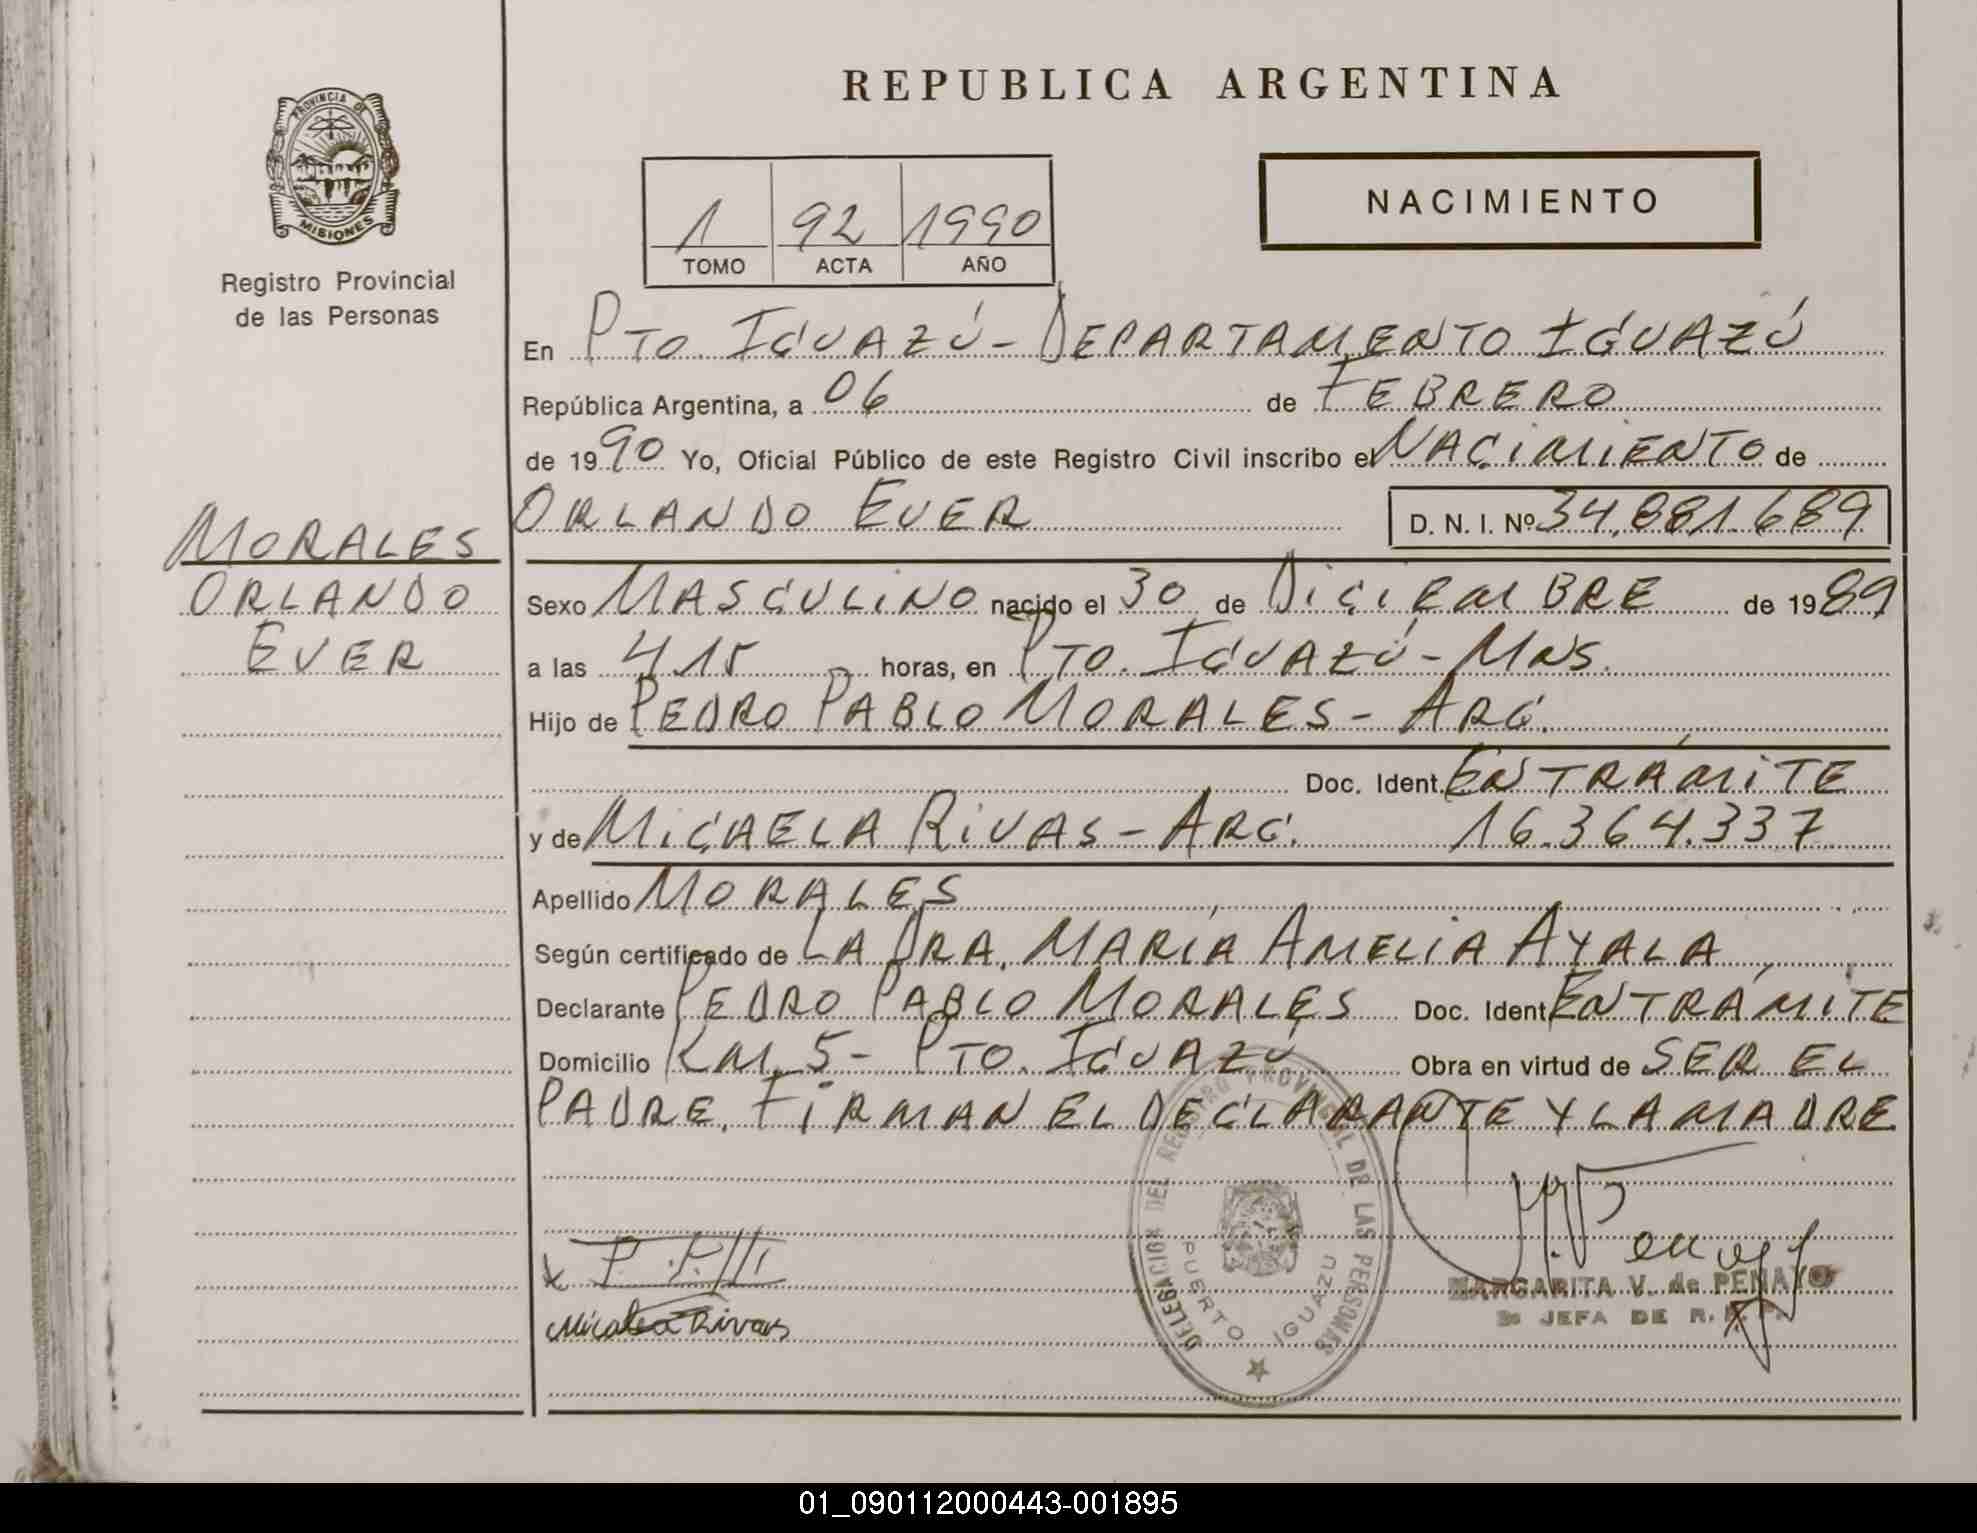 REPUBLICA ARGENTINA
PROVINCIA DE
MISIONES
Registro Provincial
de las Personas
NACIMIENTO
1 92 1990
TOMO ACTA AÑO
En PTO. IGUAZÚ - DEPARTAMENTO IGUAZÚ
República Argentina, a 06 de FEBRERO
de 1990 Yo, Oficial Público de este Registro Civil inscribo el NACIMIENTO de
ORLANDO EVER D. N. I. Nº 34.881.689
MORALES
ORLANDO
EVER
Sexo MASCULINO nacido el 30 de DICIEMBRE de 1989
a las 4 15 horas, en PTO. IGUAZÚ - MNS.
Hijo de PEDRO PABLO MORALES - ARG.
Doc. Ident. EN TRÁMITE
y de MICAELA RIVAS - ARG. 16.364.337
Apellido MORALES
Según certificado de LA DRA. MARÍA AMELIA AYALA
Declarante PEDRO PABLO MORALES Doc. Ident EN TRÁMITE
Domicilio KM. 5 - PTO. IGUAZÚ Obra en virtud de SER EL
PADRE. FIRMAN EL DECLARANTE Y LA MADRE
DELEGACION DEL REGISTRO PROVINCIAL DE LAS PERSONAS
PUERTO IGUAZU
Micaela Rivas
MARGARITA V. de PENAYO
JEFA DE R.
01_090112000443-001895